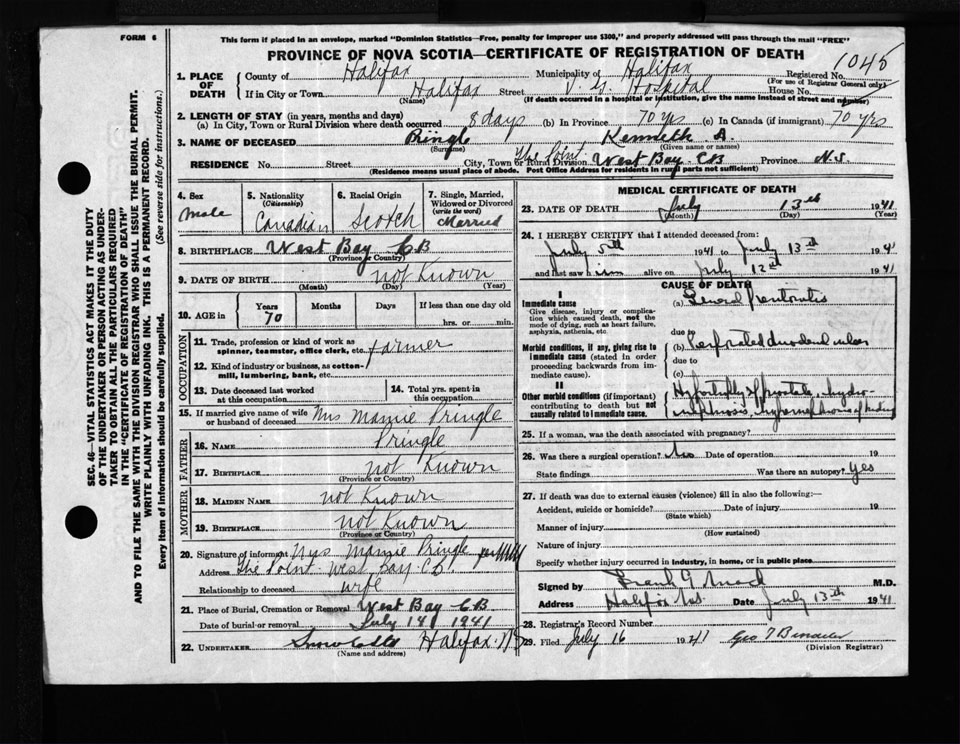 FORM 6
This form if placed in an envelope, marked "Dominion Statistics—Free, penalty for improper use $300," and properly addressed will pass through the mail "FREE"
PROVINCE OF NOVA SCOTIA—CERTIFICATE OF REGISTRATION OF DEATH
1045
1. PLACE OF DEATH
County of Halifax Municipality of Halifax Registered No.
(For use of Registrar General only)
If in City or Town Halifax Street V. G. Hospital House No.
(Name) (If death occurred in a hospital or institution, give the name instead of street and number)
2. LENGTH OF STAY (in years, months and days)
(a) In City, Town or Rural Division where death occurred 8 days (b) In Province 70 yrs (c) In Canada (if immigrant) 70 yrs
3. NAME OF DECEASED Pringle Kenneth A.
(Surname) (Given name or names)
RESIDENCE No. Street City, Town or Rural Division The Point West Bay CB Province N.S.
(Residence means usual place of abode. Post Office Address for residents in rural parts not sufficient)
SEC. 46—VITAL STATISTICS ACT MAKES IT THE DUTY
OF THE UNDERTAKER OR PERSON ACTING AS UNDER-
TAKER TO OBTAIN ALL THE PARTICULARS REQUIRED
IN THE "CERTIFICATE OF REGISTRATION OF DEATH"
AND TO FILE THE SAME WITH THE DIVISION REGISTRAR WHO SHALL ISSUE THE BURIAL PERMIT.
WRITE PLAINLY WITH UNFADING INK. THIS IS A PERMANENT RECORD.
Every item of information should be carefully supplied. (See reverse side for instructions.)
4. Sex
Male
5. Nationality
(Citizenship)
Canadian
6. Racial Origin
Scotch
7. Single, Married,
Widowed or Divorced
(write the word)
Married
8. BIRTHPLACE West Bay CB
(Province or Country)
9. DATE OF BIRTH not Known
(Month) (Day) (Year)
10. AGE in
Years Months Days If less than one day old
70 hrs. or min.
OCCUPATION
11. Trade, profession or kind of work as
spinner, teamster, office clerk, etc. farmer
12. Kind of industry or business, as cotton-
mill, lumbering, bank, etc.
13. Date deceased last worked
at this occupation
14. Total yrs. spent in
this occupation
15. If married give name of wife
or husband of deceased Mrs Mamie Pringle
FATHER
16. NAME Pringle
17. BIRTHPLACE not Known
(Province or Country)
MOTHER
18. MAIDEN NAME not Known
19. BIRTHPLACE not Known
(Province or Country)
20. Signature of informant Mrs Mamie Pringle
Address The Point West Bay CB
Relationship to deceased wife
21. Place of Burial, Cremation or Removal West Bay CB
Date of burial or removal July 14 1941
22. UNDERTAKER Halifax NS
(Name and address)
MEDICAL CERTIFICATE OF DEATH
23. DATE OF DEATH July 13th 1941
(Month) (Day) (Year)
24. I HEREBY CERTIFY that I attended deceased from:
July 5th 1941 to July 13th 1941
and last saw him alive on July 12th 1941
CAUSE OF DEATH
I
Immediate cause
Give disease, injury or complica-
tion which caused death, not the
mode of dying, such as heart failure,
asphyxia, asthenia, etc.
(a) General peritonitis
due to
Morbid conditions, if any, giving rise to
immediate cause (stated in order
proceeding backwards from im-
mediate cause).
(b) Perforated duodenal ulcer
due to
(c)
II
Other morbid conditions (if important)
contributing to death but not
causally related to immediate cause.
of prostate, hydro-
nephrosis, of kidney
25. If a woman, was the death associated with pregnancy?
26. Was there a surgical operation? No Date of operation 19
State findings Was there an autopsy? Yes
27. If death was due to external causes (violence) fill in also the following:—
Accident, suicide or homicide? Date of injury 19
(State which)
Manner of injury
(How sustained)
Nature of injury
Specify whether injury occurred in industry, in home, or in public place
Signed by Frank G. Mack M.D.
Address Halifax N.S. Date July 13th 1941
28. Registrar's Record Number
29. Filed July 16 1941
(Division Registrar)